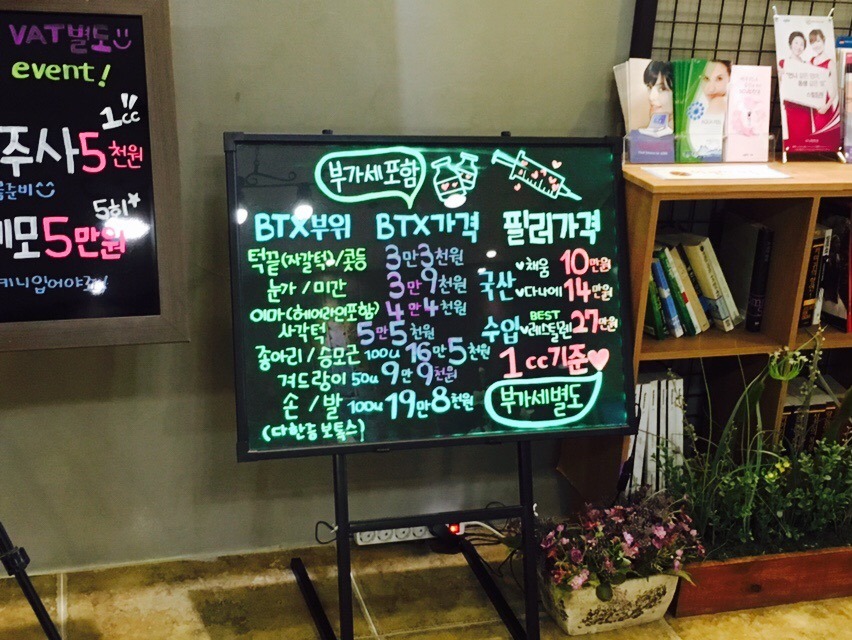 VAT별도
event!
1cc
주사 5천원
준비
5회
5만원
부가세포함
BTX부위 BTX가격 필러가격
턱끝(자갈턱)/콧등 3만3천원
눈가/미간 3만9천원
이마(헤어라인포함) 4만4천원
사각턱 5만5천원
종아리/승모근 100u 16만5천원
겨드랑이 50u 9만9천원
손/발 100u 19만8천원
(다한증보톡스)
국산 채움 10만원
다나에 14만원
BEST
수입 레스틸렌 27만원
1cc기준
부가세별도